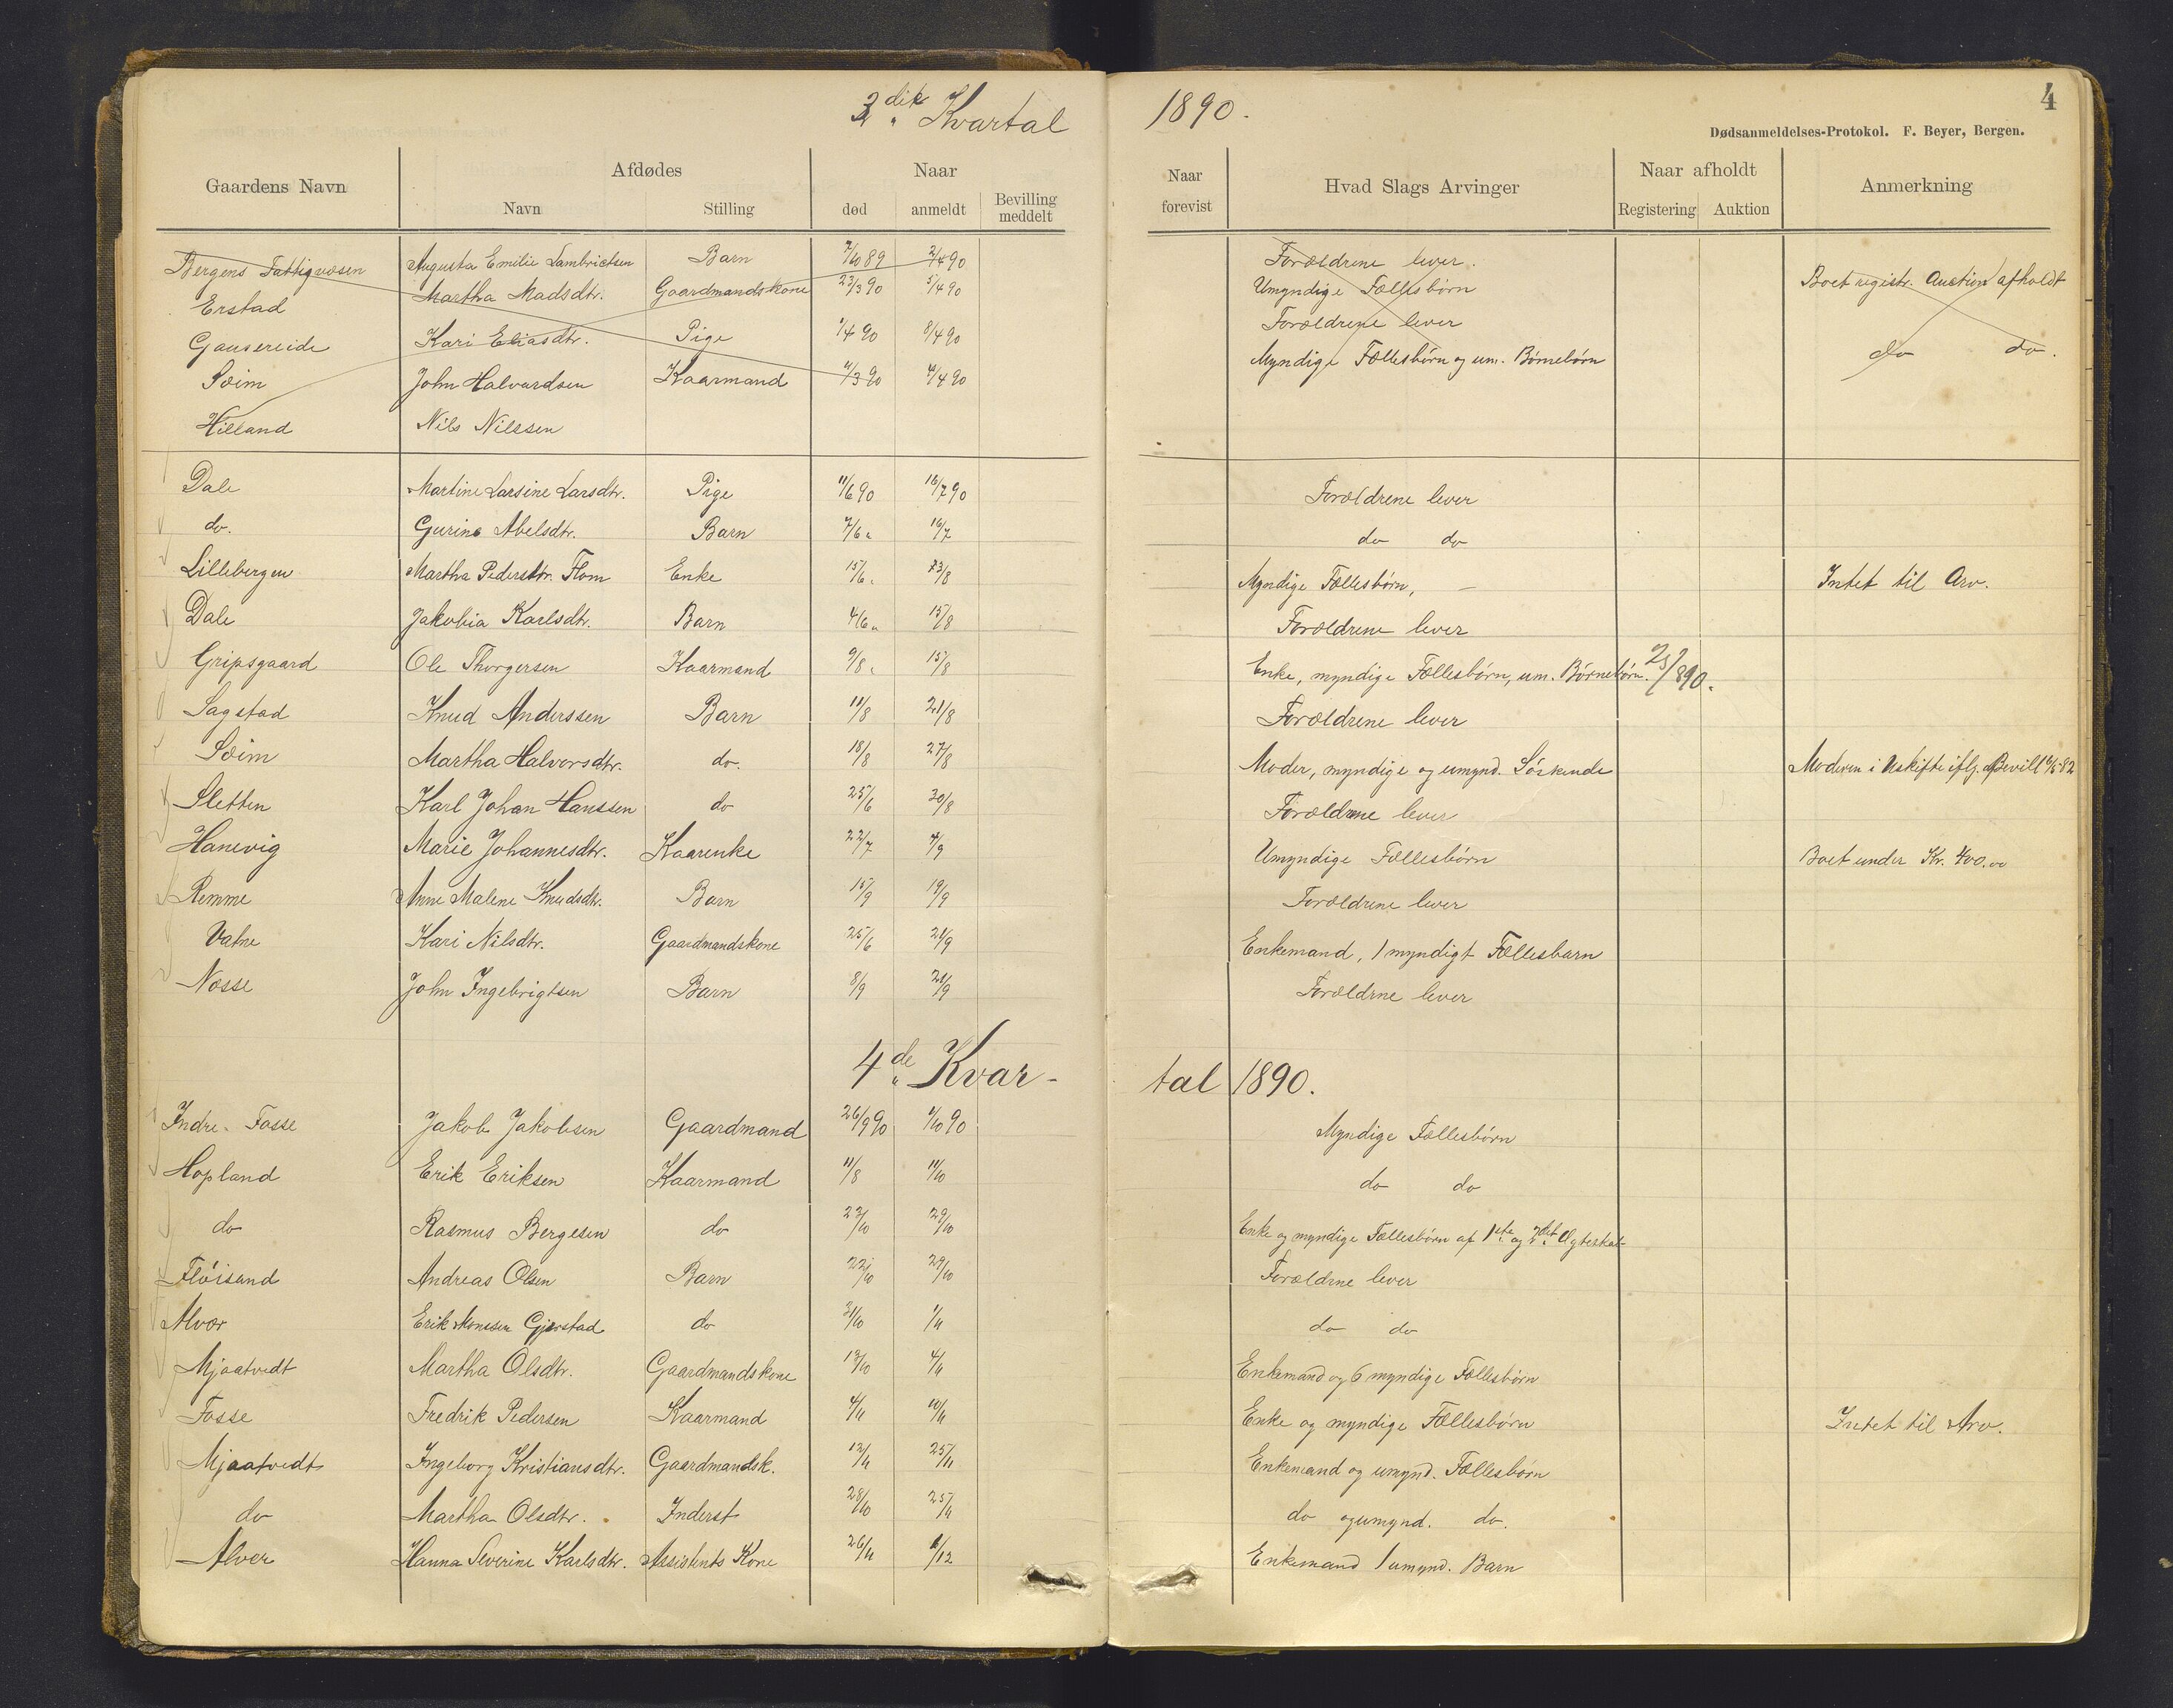 3die Kvartal 1890.
4
Dødsanmeldelses-Protokol. F. Beyer, Bergen.
Gaardens Navn | Afdødes | Naar | Naar forevist | Hvad Slags Arvinger | Naar afholdt | Anmerkning
Navn | Stilling | død | anmeldt | Bevilling meddelt | Registering | Auktion
Bergens Fattigvæsen Augusta Emilie Lambrictsen Barn 7/10 89 2/4 90 Forældrene lever.
Erstad Martha Madsdtr. Gaardmandskone 23/3 90 5/4 90 Umyndige Fællesbørn Boet registr. Auction afholdt
Gausereide Kari Eliasdtr. Pige 1/4 90 8/4 90 Forældrene lever
Sæim John Halvardsen Kaarmand 3 90 4 90 Myndige Fællesbørn og um. Børnebørn do do.
Hilland Nils Nilssen
Dale Martine Larsine Larsdtr. Pige 11/6 90 16/7 90 Forældrene lever
do. Gurine Abelsdtr. Barn 7/6 " 16/7 do do
Lillebergen Martha Pedersdtr. Flom Enke 15/6 " 13/8 Myndige Fællesbørn, — Intet til Arv.
Dale Jakobia Karlsdtr. Barn 4/6 " 15/8 Forældrene lever
Gripsgaard Ole Thorgersen Kaarmand 9/8 " 15/8 Enke, myndige Fællesbørn, um. Børnebørn. 25/8 90.
Sagstad Knud Anderssen Barn 11/8 21/8 Forældrene lever
Sæim Martha Halvorsdtr. do. 18/8 27/8 Moder, myndige og umynd. Söskende Moderen i Uskifte iflg. Bevill 82
Sletten Karl Johan Hanssen do 25/6 30/8 Forældrene lever
Hanevig Marie Johannesdtr. Kaarenke 22/7 4/9 Umyndige Fællesbørn Boet under Kr. 400.00
Remme Anne Malene Knudsdtr. Barn 15/9 19/9 Forældrene lever
Vatne Kari Nilsdtr. Gaardmandskone 25/6 24/9 Enkemand, 1 myndigt Fællesbarn
Nesse John Ingebrigtsen Barn 8/9 24/9 Forældrne lever
4de Kvartal 1890.
Indre-Fosse Jakob Jakobsen Gaardmand 26/9 90 1/10 90 Myndige Fællesbørn
Hopland Erik Eriksen Kaarmand 11/8 11/10 do do
do Rasmus Bergesen do 22/10 29/10 Enke og myndige Fællesbørn af 1ste og 2det Ægteskab
Fløisand Andreas Olsen Barn 22/10 29/10 Forældrne lever
Alvær Erik Monsen Gjerstad do 31/10 1/11 do do
Mjaatvedt Martha Olsdtr. Gaardmandskone 13/10 4/11 Enkemand og 6 myndige Fællesbørn
Fosse Fredrik Pedersen Kaarmand 4/11 10/11 Enke og myndige Fællesbørn Intet til Arv.
Mjaatvedt Ingeborg Kristiansdtr. Gaardmandsk. 12/11 25/11 Enkemand og umynd. Fællesbørn
do Martha Olsdtr. Inderst 28/10 25/11 do og umynd. do.
Alver Hanna Severine Karlsdtr. Assistents Kone 26/11 /12 Enkemand 1 umynd. Barn